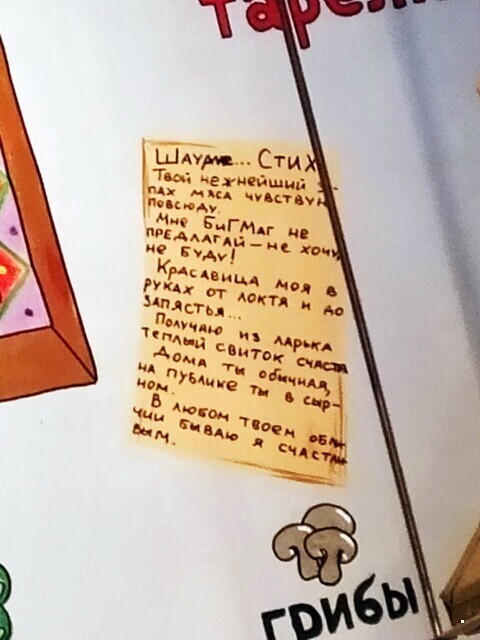 Таре
Шаурме... Стих
Твой нежнейший
пах мяса чувствую
повсюду.
Мне БигМаг не
предлагай – не хочу,
не буду!
Красавица моя в
руках от локтя и до
запястья...
Получаю из ларька
теплый свиток счастья
Дома ты обычная,
на публике ты в сыр-
ном.
В любом твоем обли-
чии бываю я счастли
вым.
грибы